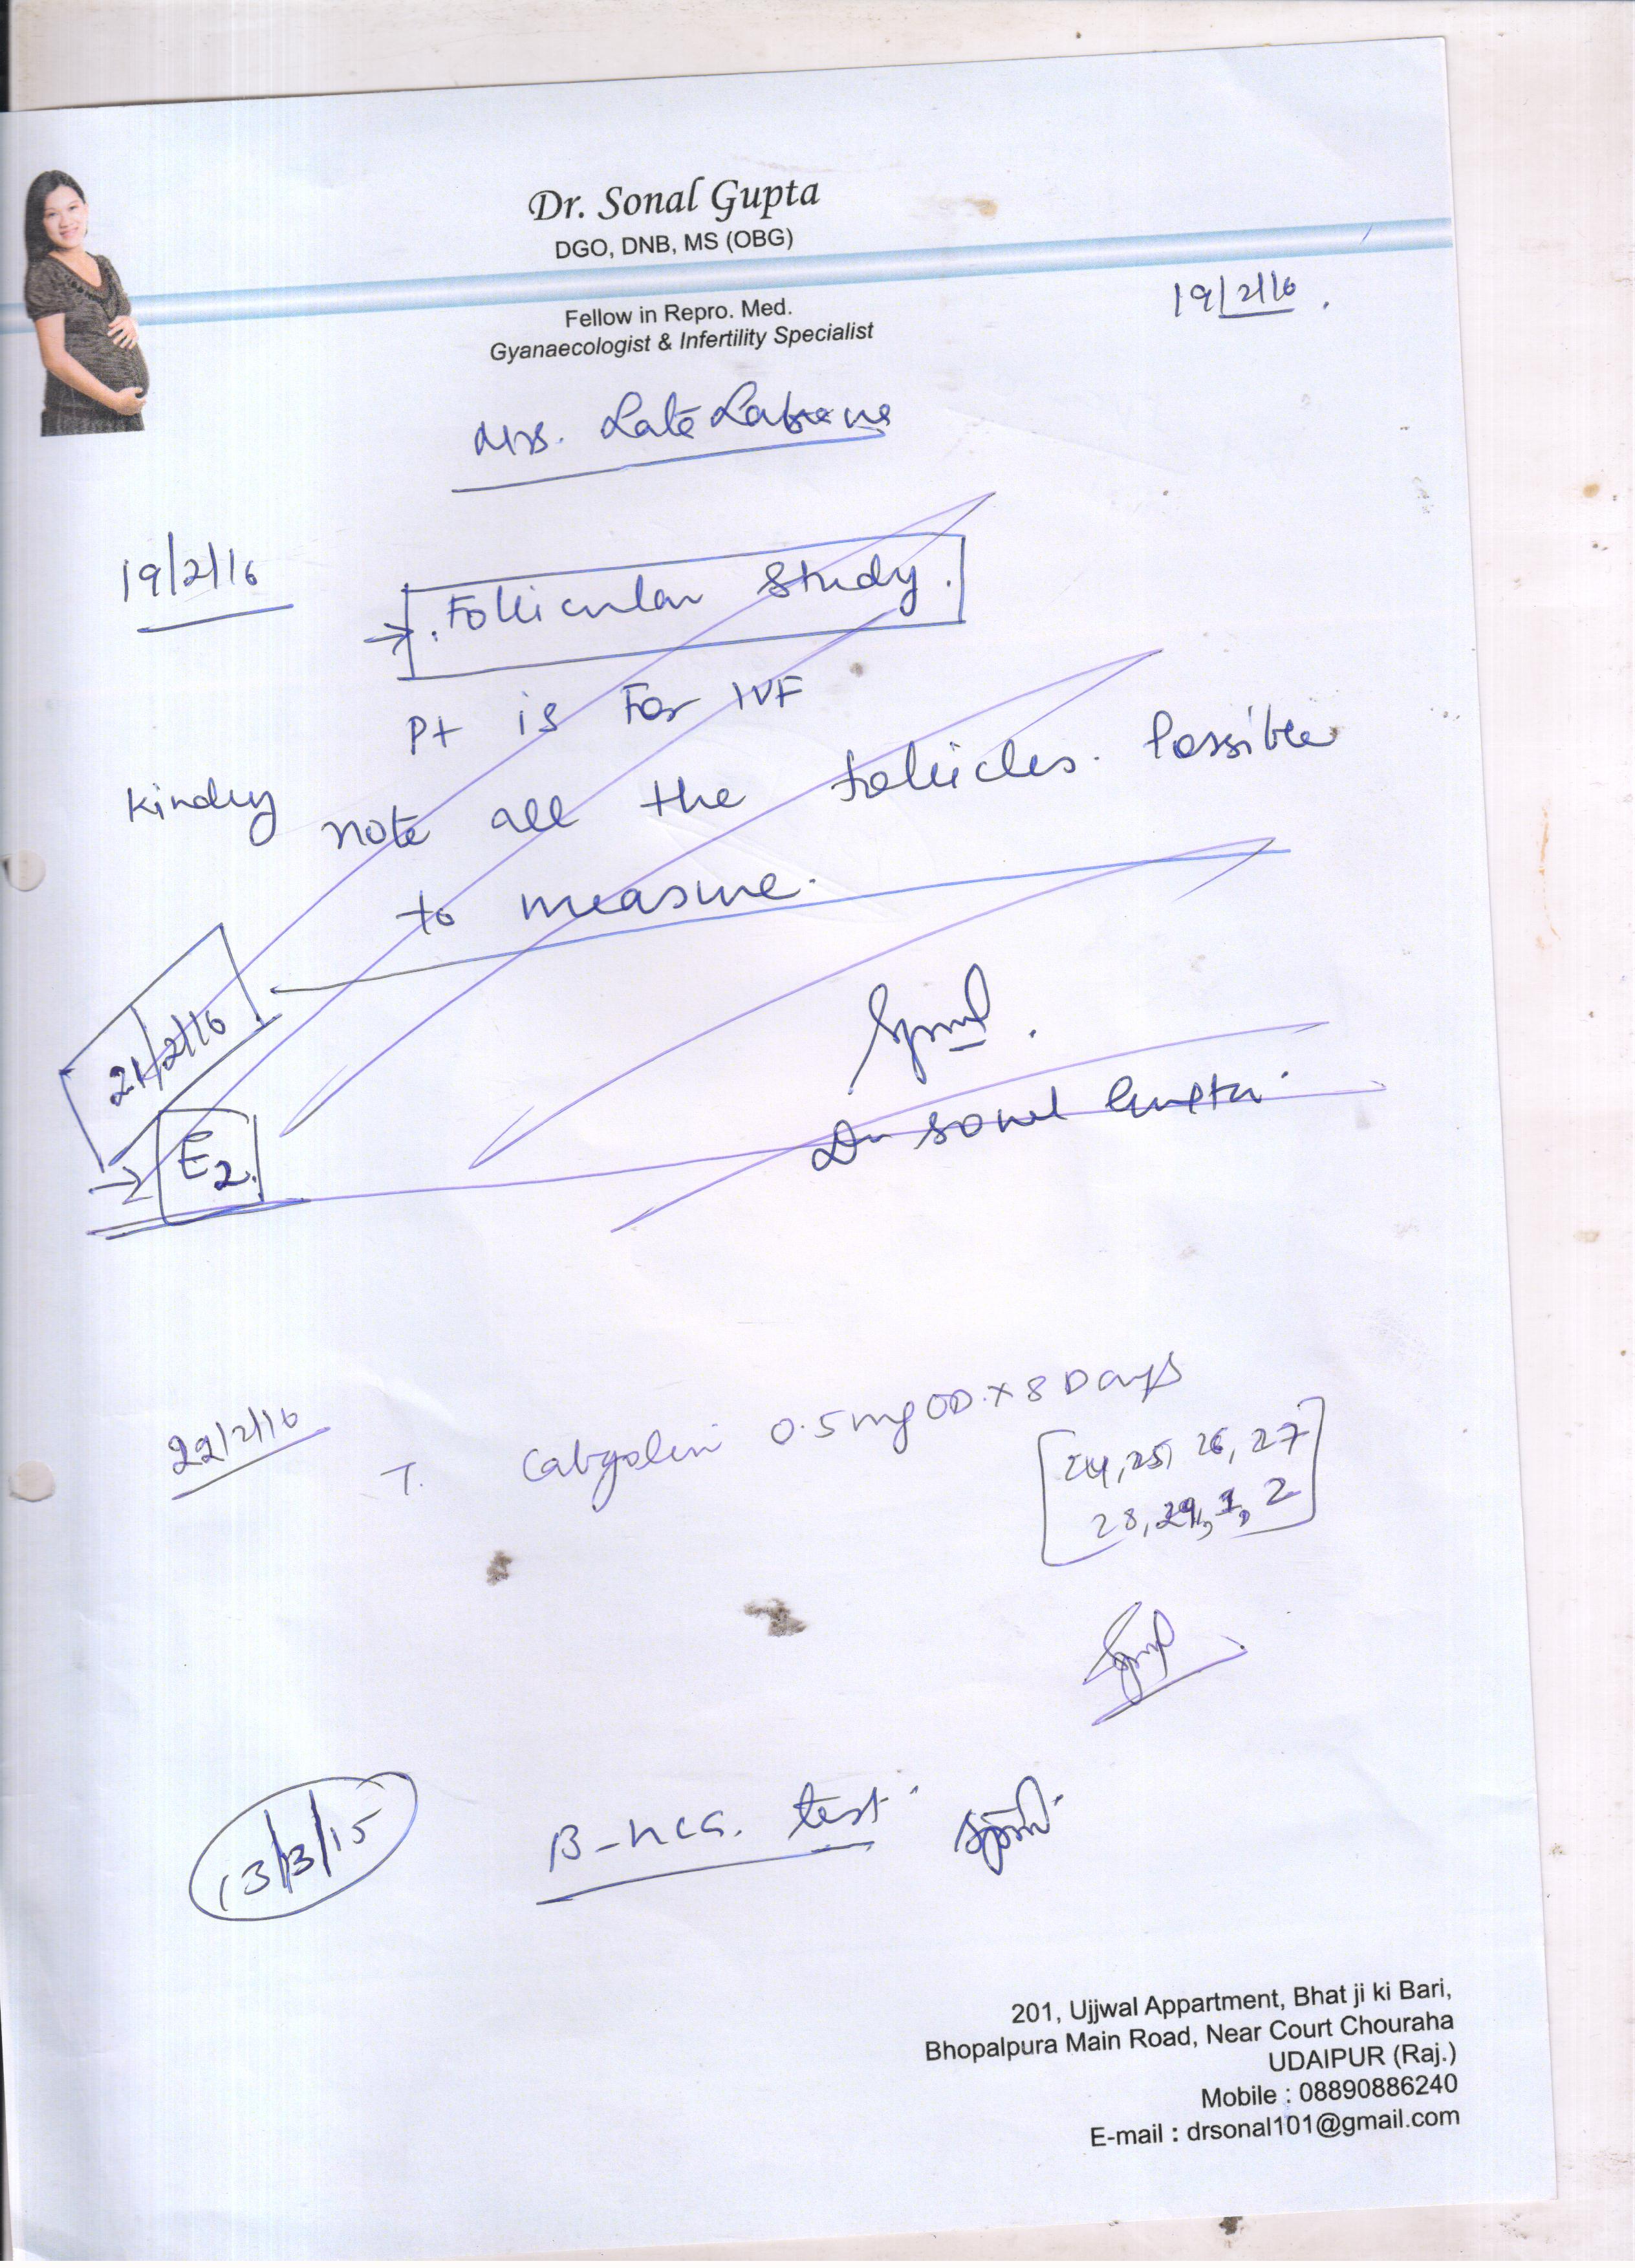 Dr. Sonal Gupta
DGO, DNB, MS (OBG)
19/2/16
Fellow in Repro. Med.
Gyanaecologist & Infertility Specialist
Mrs. Late
19/2/16
→ Follicular Study.
Pt is For IVF
Kindly note all the follicles. Possible
to measure.
21/2/16
→ E2
Dr Sonal Gupta
22/2/16
T. Cabgolin 0.5mg OD. x 8 Days
24, 25, 26, 27
28, 29, 1, 2
13/3/15
B-hCG. test
201, Ujjwal Appartment, Bhat ji ki Bari,
Bhopalpura Main Road, Near Court Chouraha
UDAIPUR (Raj.)
Mobile : 08890886240
E-mail : drsonal101@gmail.com